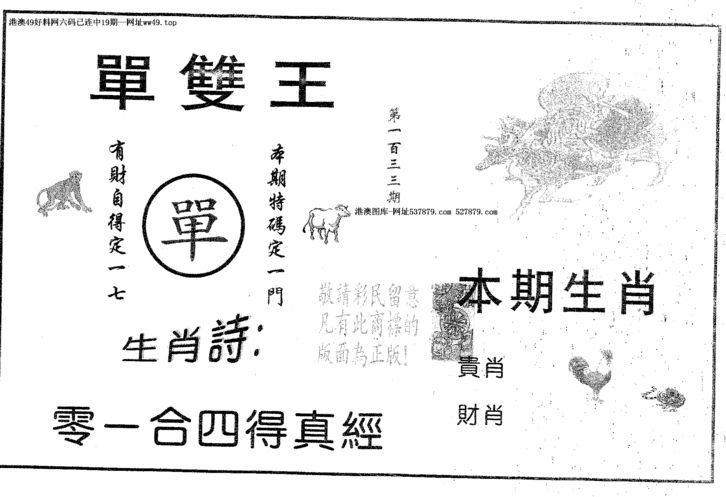 港澳49好料网六码已连中19期—网址ww49.top
單雙王
第一百三三期
有財自得定一七
單
本期特碼定一門
港澳图库-网址537879.com 527879.com
敬請彩民留意
凡有此商標的
版面為正版!
本期生肖
生肖詩:
貴肖
財肖
零一合四得真經